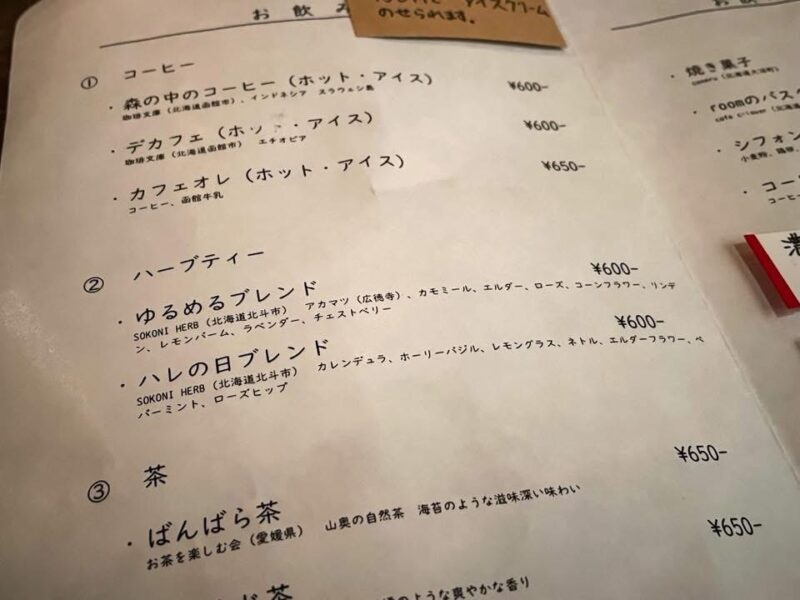 お飲み
アイスクリーム
のせられます。
① コーヒー
・森の中のコーヒー（ホット・アイス） ¥600-
珈琲文庫（北海道函館市）、インドネシア スラウェシ島
・デカフェ（ホット・アイス） ¥600-
珈琲文庫（北海道函館市） エチオピア
・カフェオレ（ホット・アイス） ¥650-
コーヒー、函館牛乳
② ハーブティー
・ゆるめるブレンド ¥600-
SOKONI HERB（北海道北斗市） アカマツ（広徳寺）、カモミール、エルダー、ローズ、コーンフラワー、リンデ
ン、レモンバーム、ラベンダー、チェストベリー
・ハレの日ブレンド ¥600-
SOKONI HERB（北海道北斗市） カレンデュラ、ホーリーバジル、レモングラス、ネトル、エルダーフラワー、ペ
パーミント、ローズヒップ
③ 茶
・ばんばら茶 ¥650-
お茶を楽しむ会（愛媛県） 山奥の自然茶 海苔のような滋味深い味わい
茶 ¥650-
のような爽やかな香り
・焼き菓子
・roomのバス
・シフォン
小麦粉、
・コー
コーヒ